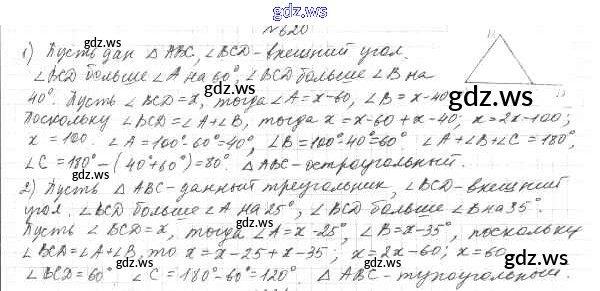 gdz.ws
№620
1) Пусть дан △ABC, ∠BCD - внешний угол.
∠BCD больше ∠A на 60°, ∠BCD больше ∠B на
40°. Пусть ∠BCD = x, тогда ∠A = x-60, ∠B = x-40
Поскольку ∠BCD = ∠A + ∠B, тогда x = x-60 + x-40; x = 2x-100;
x = 100. ∠A = 100°-60° = 40°, ∠B = 100°-40° = 60° ∠A + ∠B + ∠C = 180°,
∠C = 180° - (40°+60°) = 80°. △ABC - остроугольный.
2) Пусть △ABC - данный треугольник, ∠BCD - внешний
угол. ∠BCD больше ∠A на 25°, ∠BCD больше ∠B на 35°.
Пусть ∠BCD = x, тогда ∠A = x-25°, ∠B = x-35°, поскольку
∠BCD = ∠A + ∠B, то x = x-25 + x-35; x = 2x-60; x = 60,
∠BCD = 60° ∠C = 180°-60° = 120° △ABC - тупоугольный.
gdz.ws
gdz.ws
gdz.ws
gdz.ws
gdz.ws
gdz.ws
gdz.ws
gdz.ws